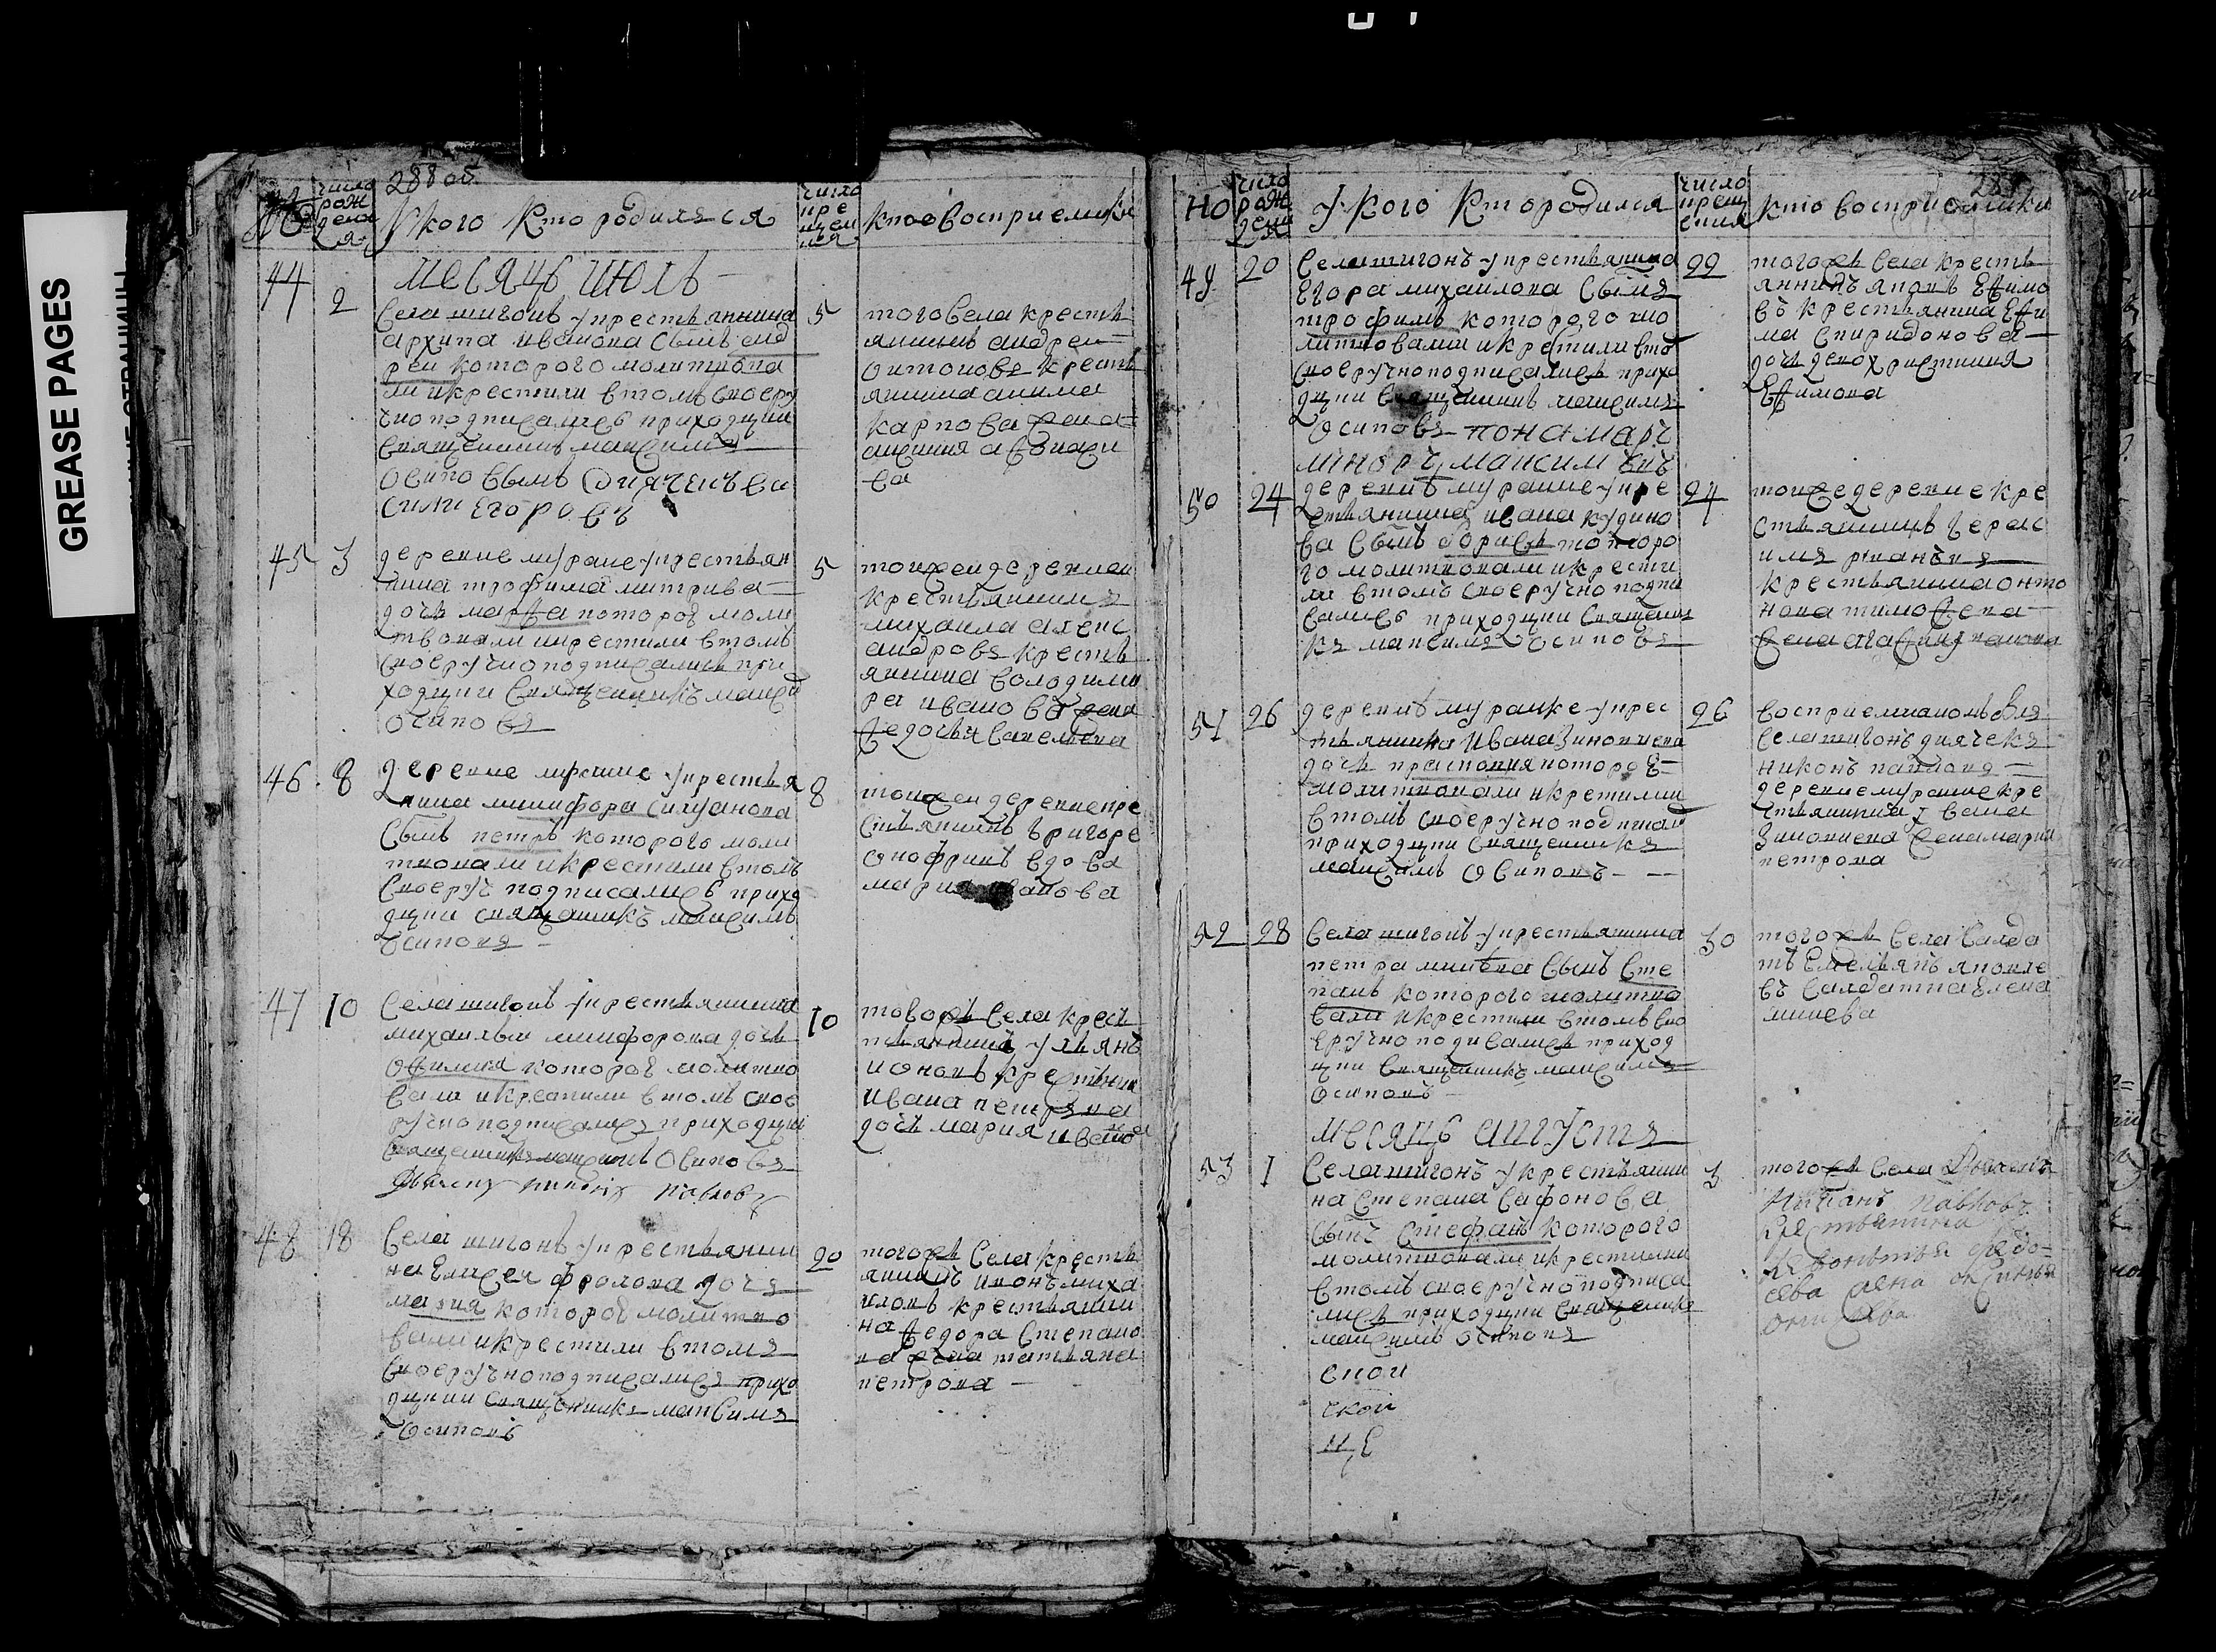 GREASE PAGES
288 об
число рождения
У кого кто родилься
число крещения
кто восприемники
44
месяцъ июль
2
села шигонъ у крестьянина
архипа иванова сынъ анд
реи которого молитвова
ли и крестили втомъ своеру
чно подписалисъ приходцкии
священникъ максимъ
осиповымъ дияченъ ва
сили егоровъ
5
того села кресть
янинъ андреи
онтоновъ кресть
янина акима
карпова жена
45
3
деревне муранке у крестьян
нина трофима митрива
дочь марфа которог моли
твовали и крестили втомъ
своеручно подписались при
ходцки священникъ макси
осиповъ
5
тойжеи деревнеи
крестьянинъ
михаила алекс
андровъ кресть
янина володими
ра иванова жена
федосья савельева
46
8
у крестья
нина микифора силуанова
сынъ петръ которого моли
твовали и крестили втомъ
своеруч подписалисъ прихо
дцки священникъ максимъ
осиповъ
8
тойжеи деревне кре
стьянинъ григоре
онофринъ вдова
47
10
села шигонъ у крестьянина
михаилы микифорова дочь
офимия которог молитво
вали и крестили втомъ свое
ручно подписалисъ приходцки
священникъ максимъ осиповъ
павловъ
10
тогожъ села крест
тьянинъ ульянъ
ивана петрова
дочь мария ивано
48
18
села шигонъ у крестьянин
на елисея фролова дочь
мария которог молитво
вали и крестили втомъ
своеручно подписалисъ прихо
дцкии священникъ максимъ
осиповъ
20
тогожъ села кресть
янинъ иконъ миха
иловъ крестьянин
на федора степано
ва жена татьяна
петрова
но
число рождения
У кого кто родился
число крещения
289
кто восприемники
49
20
села шигонъ у крестьянина
егора михаилова сынъ
трофимъ которого мо
литвовали и крестили втом
своеручно подписалисъ прихо
дцки священникъ максимъ
осиповъ понамарь
миноръ максимовъ
22
тогожъ села кресть
янинъ яковъ ефимо
въ крестьянина ефи
ма спиридонова
дочь девк христиния
ефимова
50
24
деревнъ муранке у кре
стьянина ивана кудино
ва сынъ борисъ которо
го молитвовали и крести
ли втомъ своеручно подпи
салисъ приходцки священни
къ максимъ осиповъ
24
тойже деревне кре
стьянинъ герас
крестьянина онто
нова тимофева
51
26
деревнъ муранке у крес
тьянина ивана зиновиева
дочь прасковия которог
молитвовали и кретили
втомъ своеручно подписал
приходцки священникъ
максимъ осиповъ
26
восприемником был
села шигонъ дьячекъ
никонъ павловъ
деревне муранке кре
стьянина ивана
зиновиева жена мария
петрова
52
28
села шигонъ у крестьянина
петра микеева сынъ сте
панъ которого молитво
вали и крестили втомъ сво
еручно подписались приход
цки священникъ максимъ
осиповъ
30
тогожъ села салда
тъ емельянъ яковле
въ салдатка елена
53
месяцъ августъ
1
села шигонъ у крестьянин
на степана сафонова
сынъ стефанъ которого
молитвовали и крестили
втомъ своеручно подписа
лисъ приходцки священикъ
максимъ осиповъ
скои
скои
це
3
того жъ села дьячекъ
никанъ павловъ
крестьянина